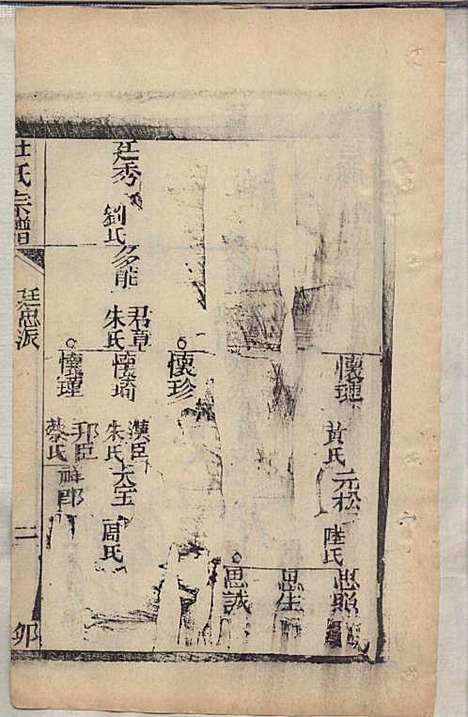 懷璉
黃氏
元松
陸氏
思照
思生
思誠
懷珍
廷秀
劉氏
多能
君章
朱氏
懷琦
漢臣
朱氏
大生
周氏
懷瑾
邦臣
蔡氏
祥郎
杜氏宗譜
廷忠派
二
卯